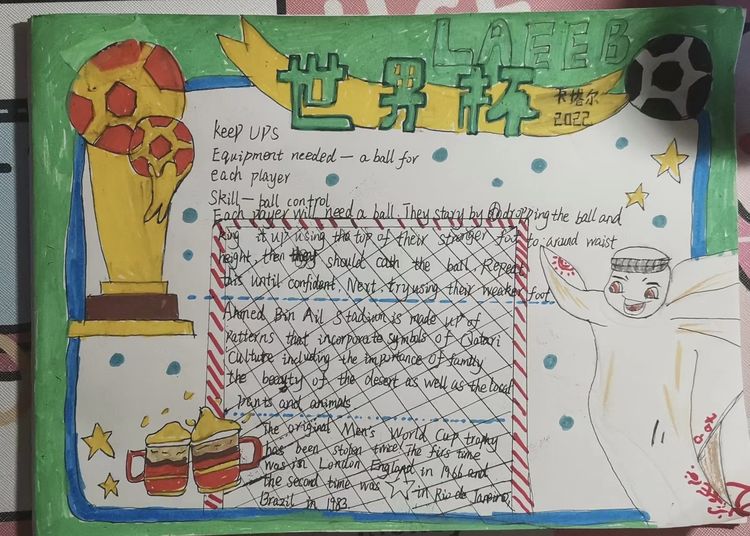 LAEEB
世界杯
卡塔尔
2022
Keep UPS
Equipment needed — a ball for
each player
Skill — ball control
Each player will need a ball. They stary by dropping the ball and
it up using the top of their stronger foot to around waist
height, then they should cath the ball. Repeat
this until confident. Next try using their weaker foot
Ahmed Bin Ail Stadium is made up of
patterns that incorporate symbols of Qatari
Culture including the importance of family
the beauty of the desert as well as the local
prants and animals
The original Men's World Cup trophy
has been stolen twice The firs time
was in London England in 1966 and
the second time was in Rio de Janeiro,
Brazil in 1983